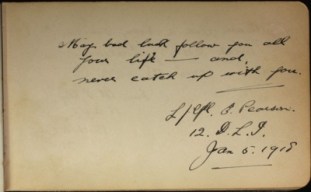 May bad luck follow you all
your life — and,
never catch up with you.
L/Cpl. C. Pearson.
12. D.L.I.
Jan 5. 1918